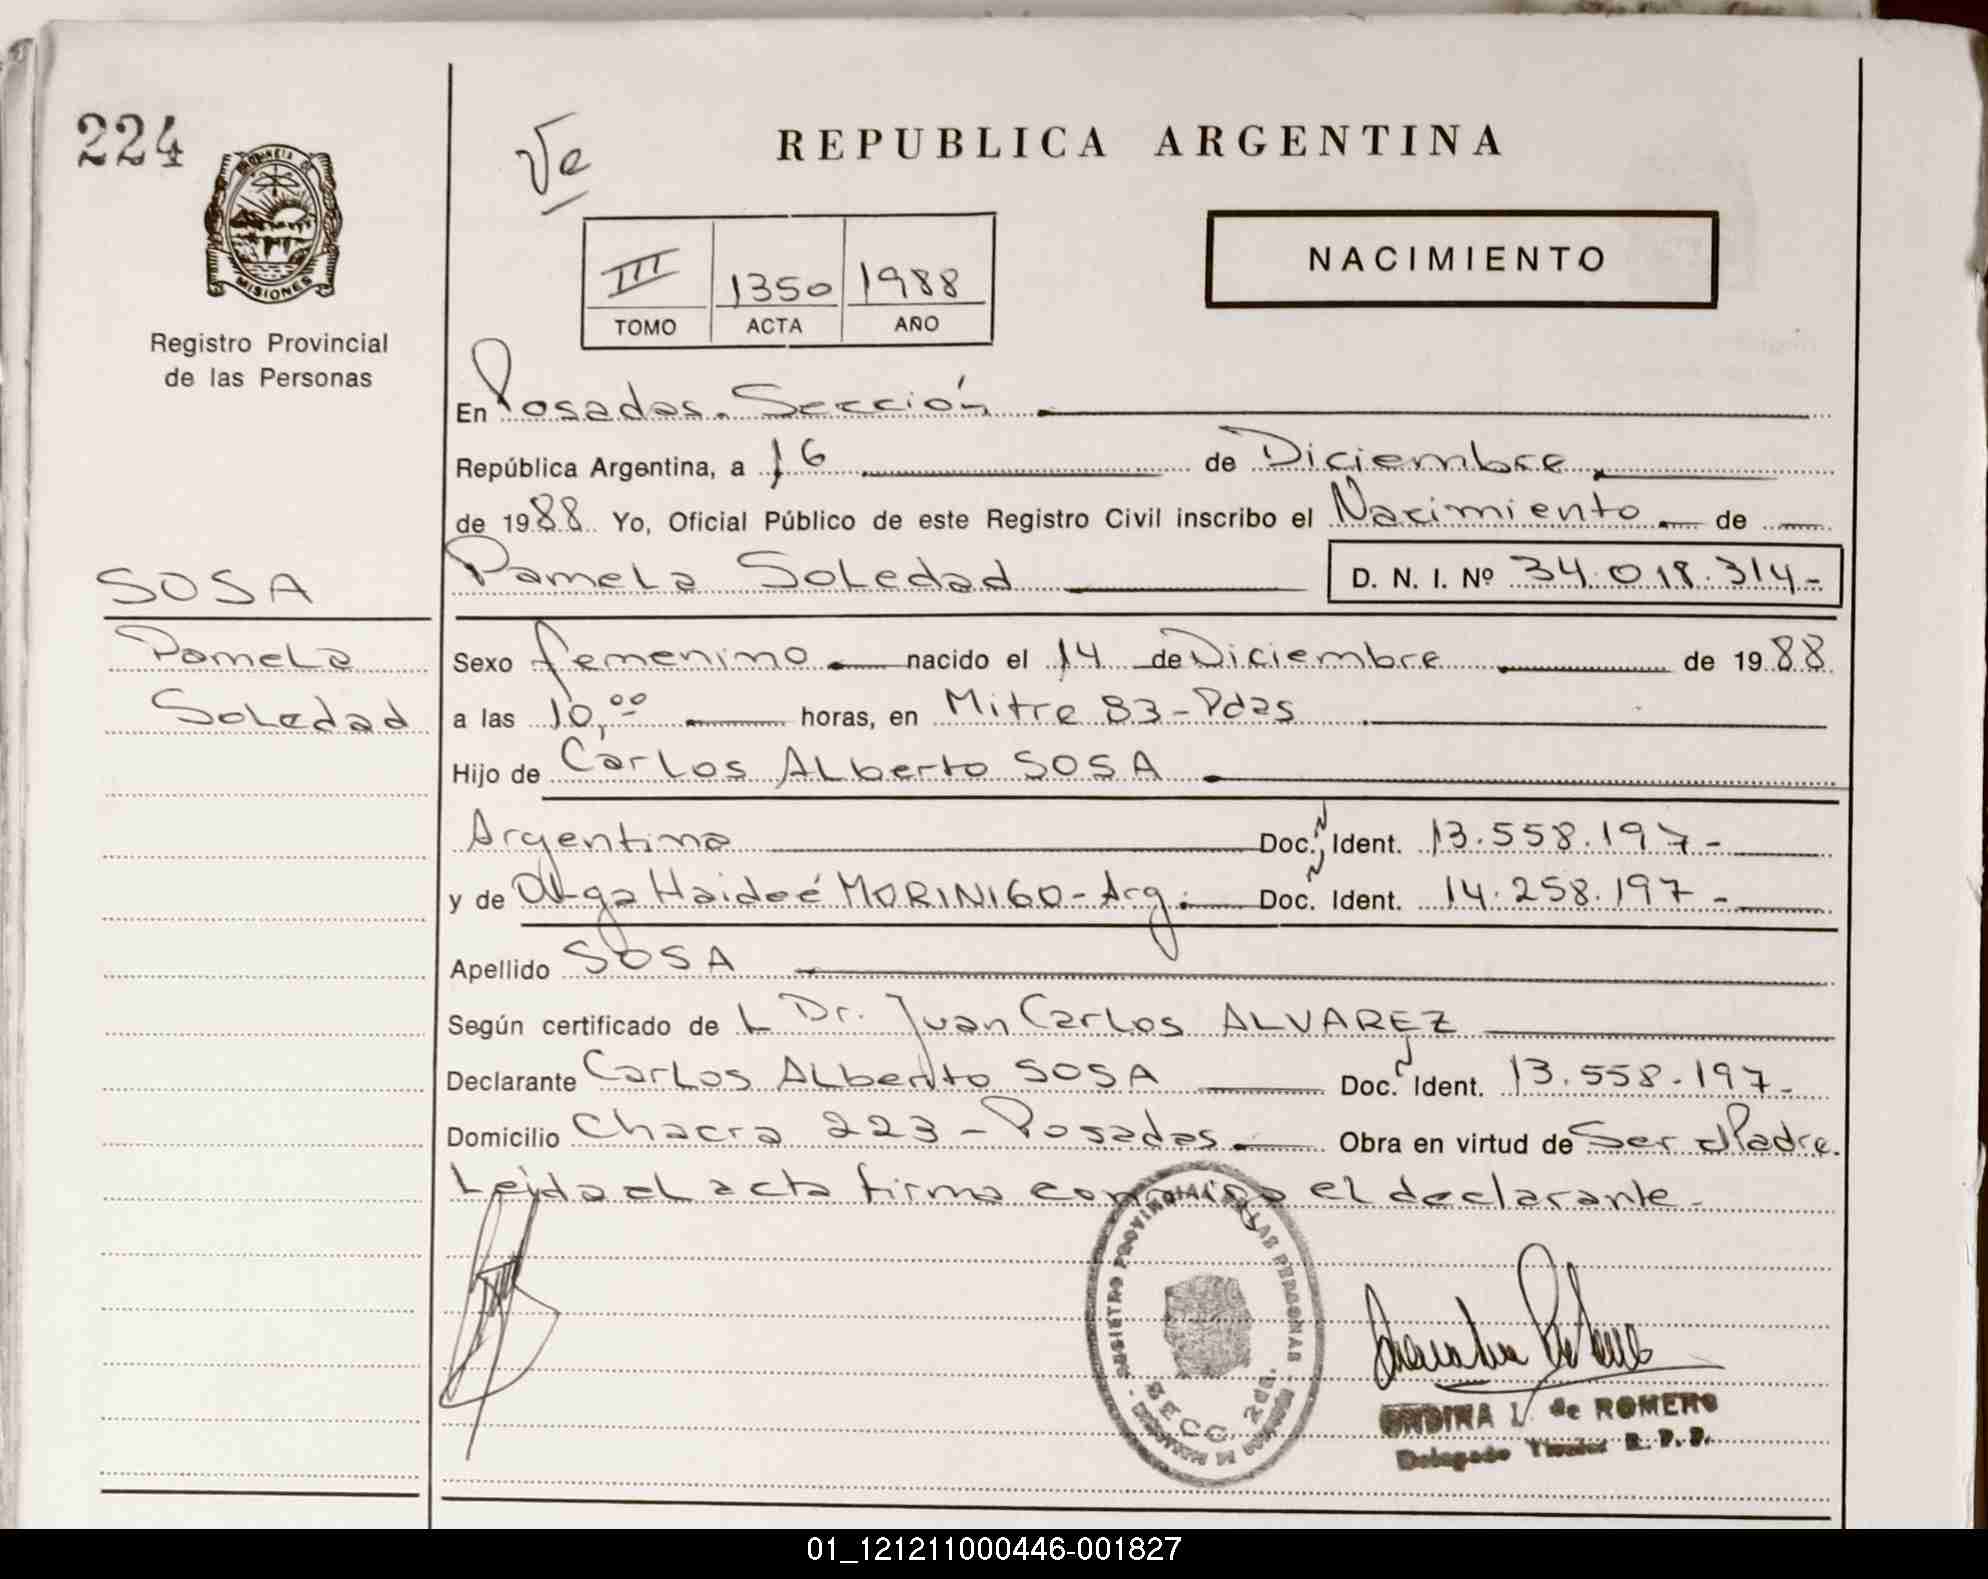 224
REPUBLICA ARGENTINA
PROVINCIA DE
MISIONES
Registro Provincial
de las Personas
III 1350 1988
TOMO ACTA AÑO
NACIMIENTO
En Posadas. Sección
República Argentina, a 16 de Diciembre
de 1988 Yo, Oficial Público de este Registro Civil inscribo el Nacimiento de
SOSA
Pamela Soledad D. N. I. Nº 34.018.314-
Pamela
Sexo femenino nacido el 14 de Diciembre de 1988
Soledad
a las 10,00 horas, en Mitre 83-Pdas
Hijo de Carlos ALberto SOSA
Argentino Doc. N Ident. 13.558.197-
y de OLga Haideé MORINIGO-Arg. Doc. N Ident. 14.258.197-
Apellido SOSA
Según certificado de L Dr. Juan Carlos ALVAREZ
Declarante Carlos ALberto SOSA Doc. N Ident. 13.558.197-
Domicilio Chacra 223-Posadas Obra en virtud de Ser el Padre.
Leida el acta firma conmigo el declarante-
REGISTRO PROVINCIAL DE LAS PERSONAS
SECC. 2da.
ONDINA L. de ROMERO
Delegado Titular R. P. P.
01_121211000446-001827